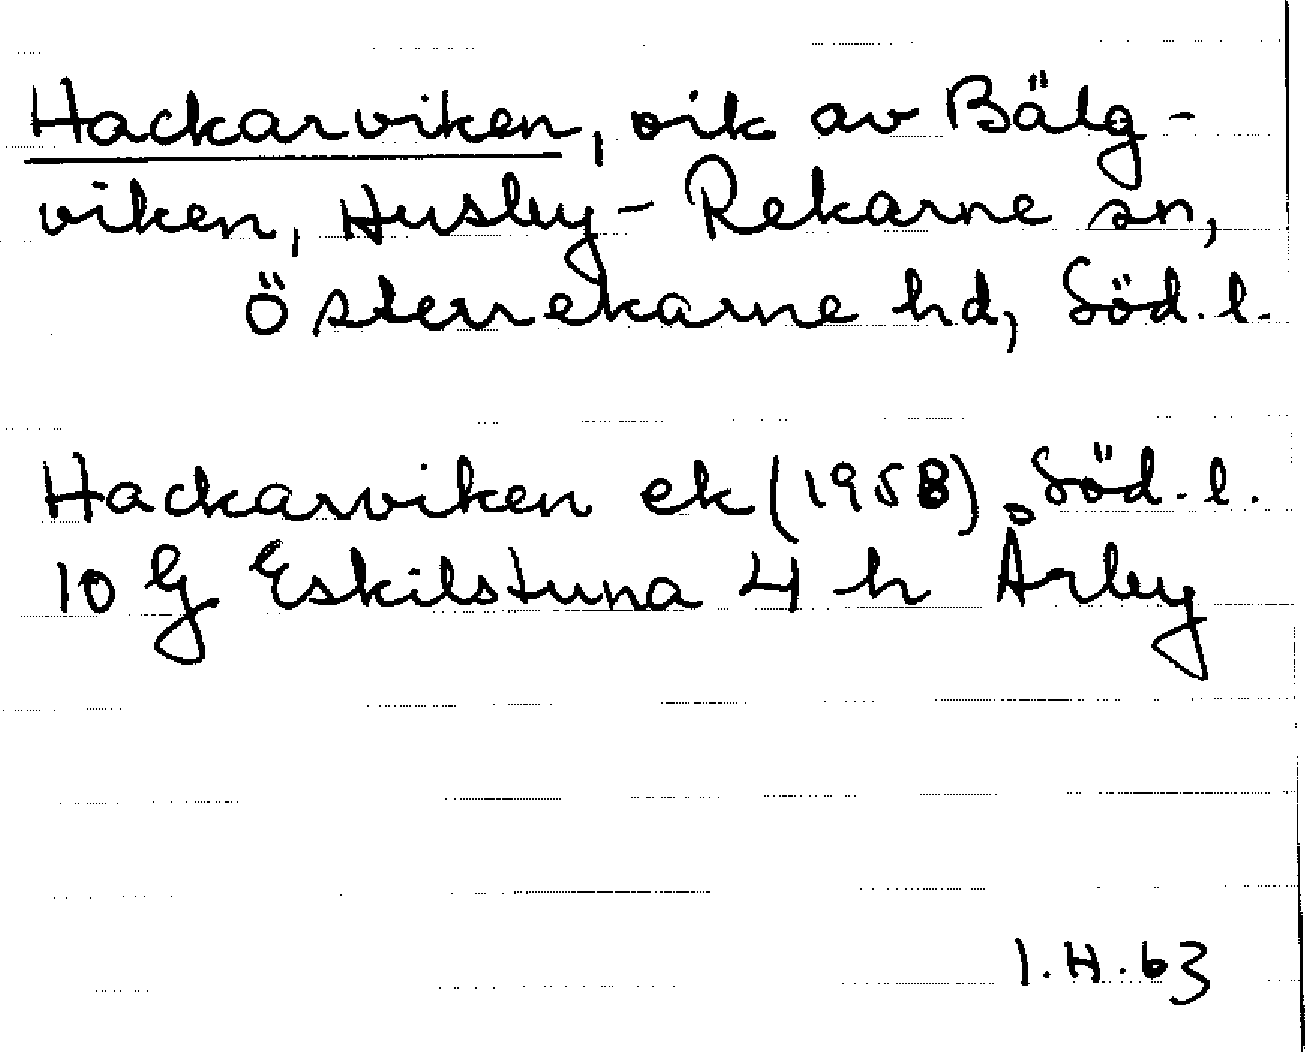 Hackarviken, vik av Bälg-
viken, Husby-Rekarne sn,
Österrekarne hd, Söd. l.
Hackarviken ek (1958) Söd. l.
10 G Eskilstuna 4 h Årby
I.H.63